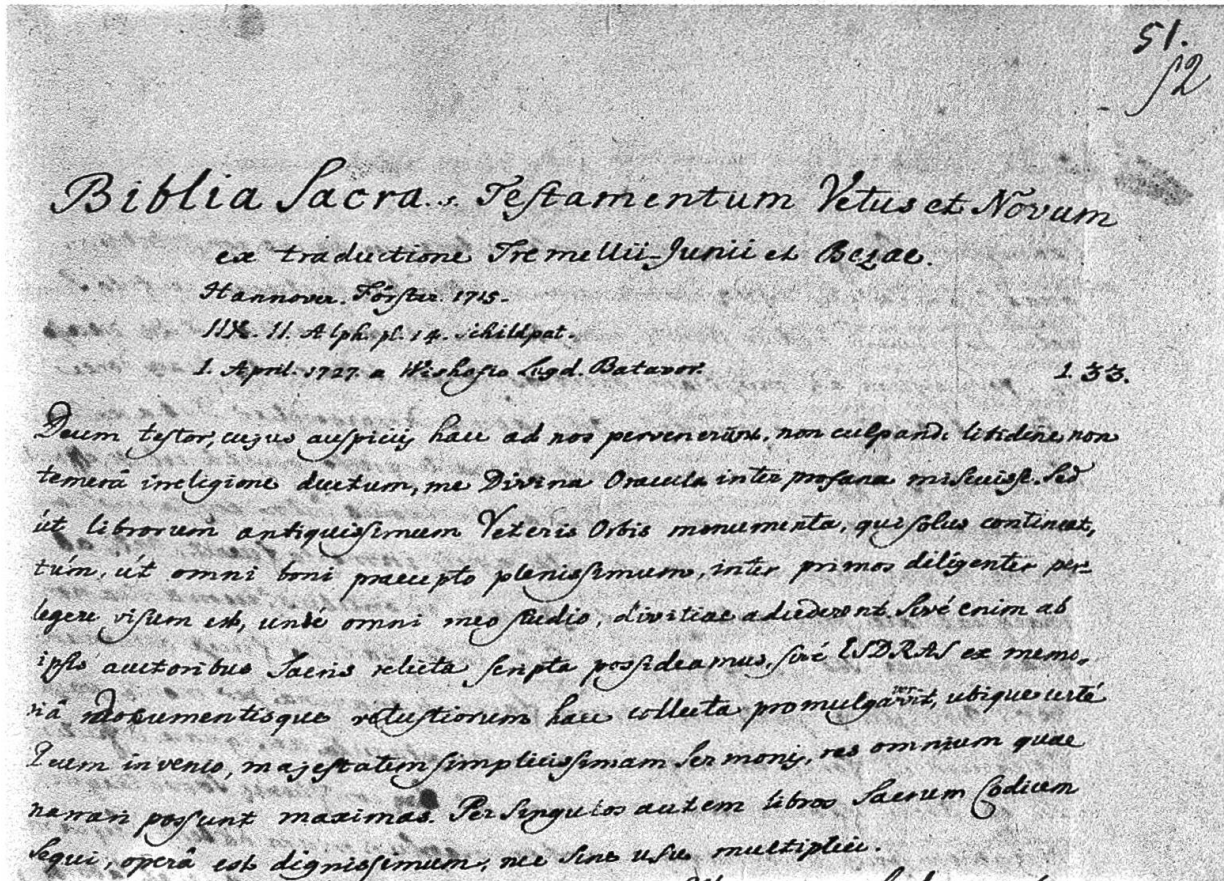 51.
52
Biblia Sacra. s. Testamentum Vetus et Novum
ex traductione Tremellii Junii et Bezae.
Hannover. Förster. 1715.
II. Alph. pl. 14. schildpat.
1. April. 1727. a Wishofio Lugd. Batavor. 1 33.
Deum testor, cujus auspicijs haec ad nos pervenerunt, non culpandi libidine, non
temerâ irreligione ductum, me Divina Oracula inter profana miscuisse. Sed
út librorum antiquissimum Veteris Orbis monumenta, qui solus contineat,
túm, út omni boni praecepto plenissimum, inter primos diligenter per-
legere visum est, unde omni meo studio, divitiae adcederent. Sivé enim ab
ipsis auctoribus Sacris relicta scripta possideamus, sivé ESDRAS ex memo-
riâ monumentisque vetustiorum haec collecta promulgaverit, ubique certé
Deum invenio, majestatem simplicissimam sermonis, res omnium quae
narrari possunt maximas. Per singulos autem libros Sacrum Codicem
sequi, operâ est dignissimum, nec sine usu multiplici.